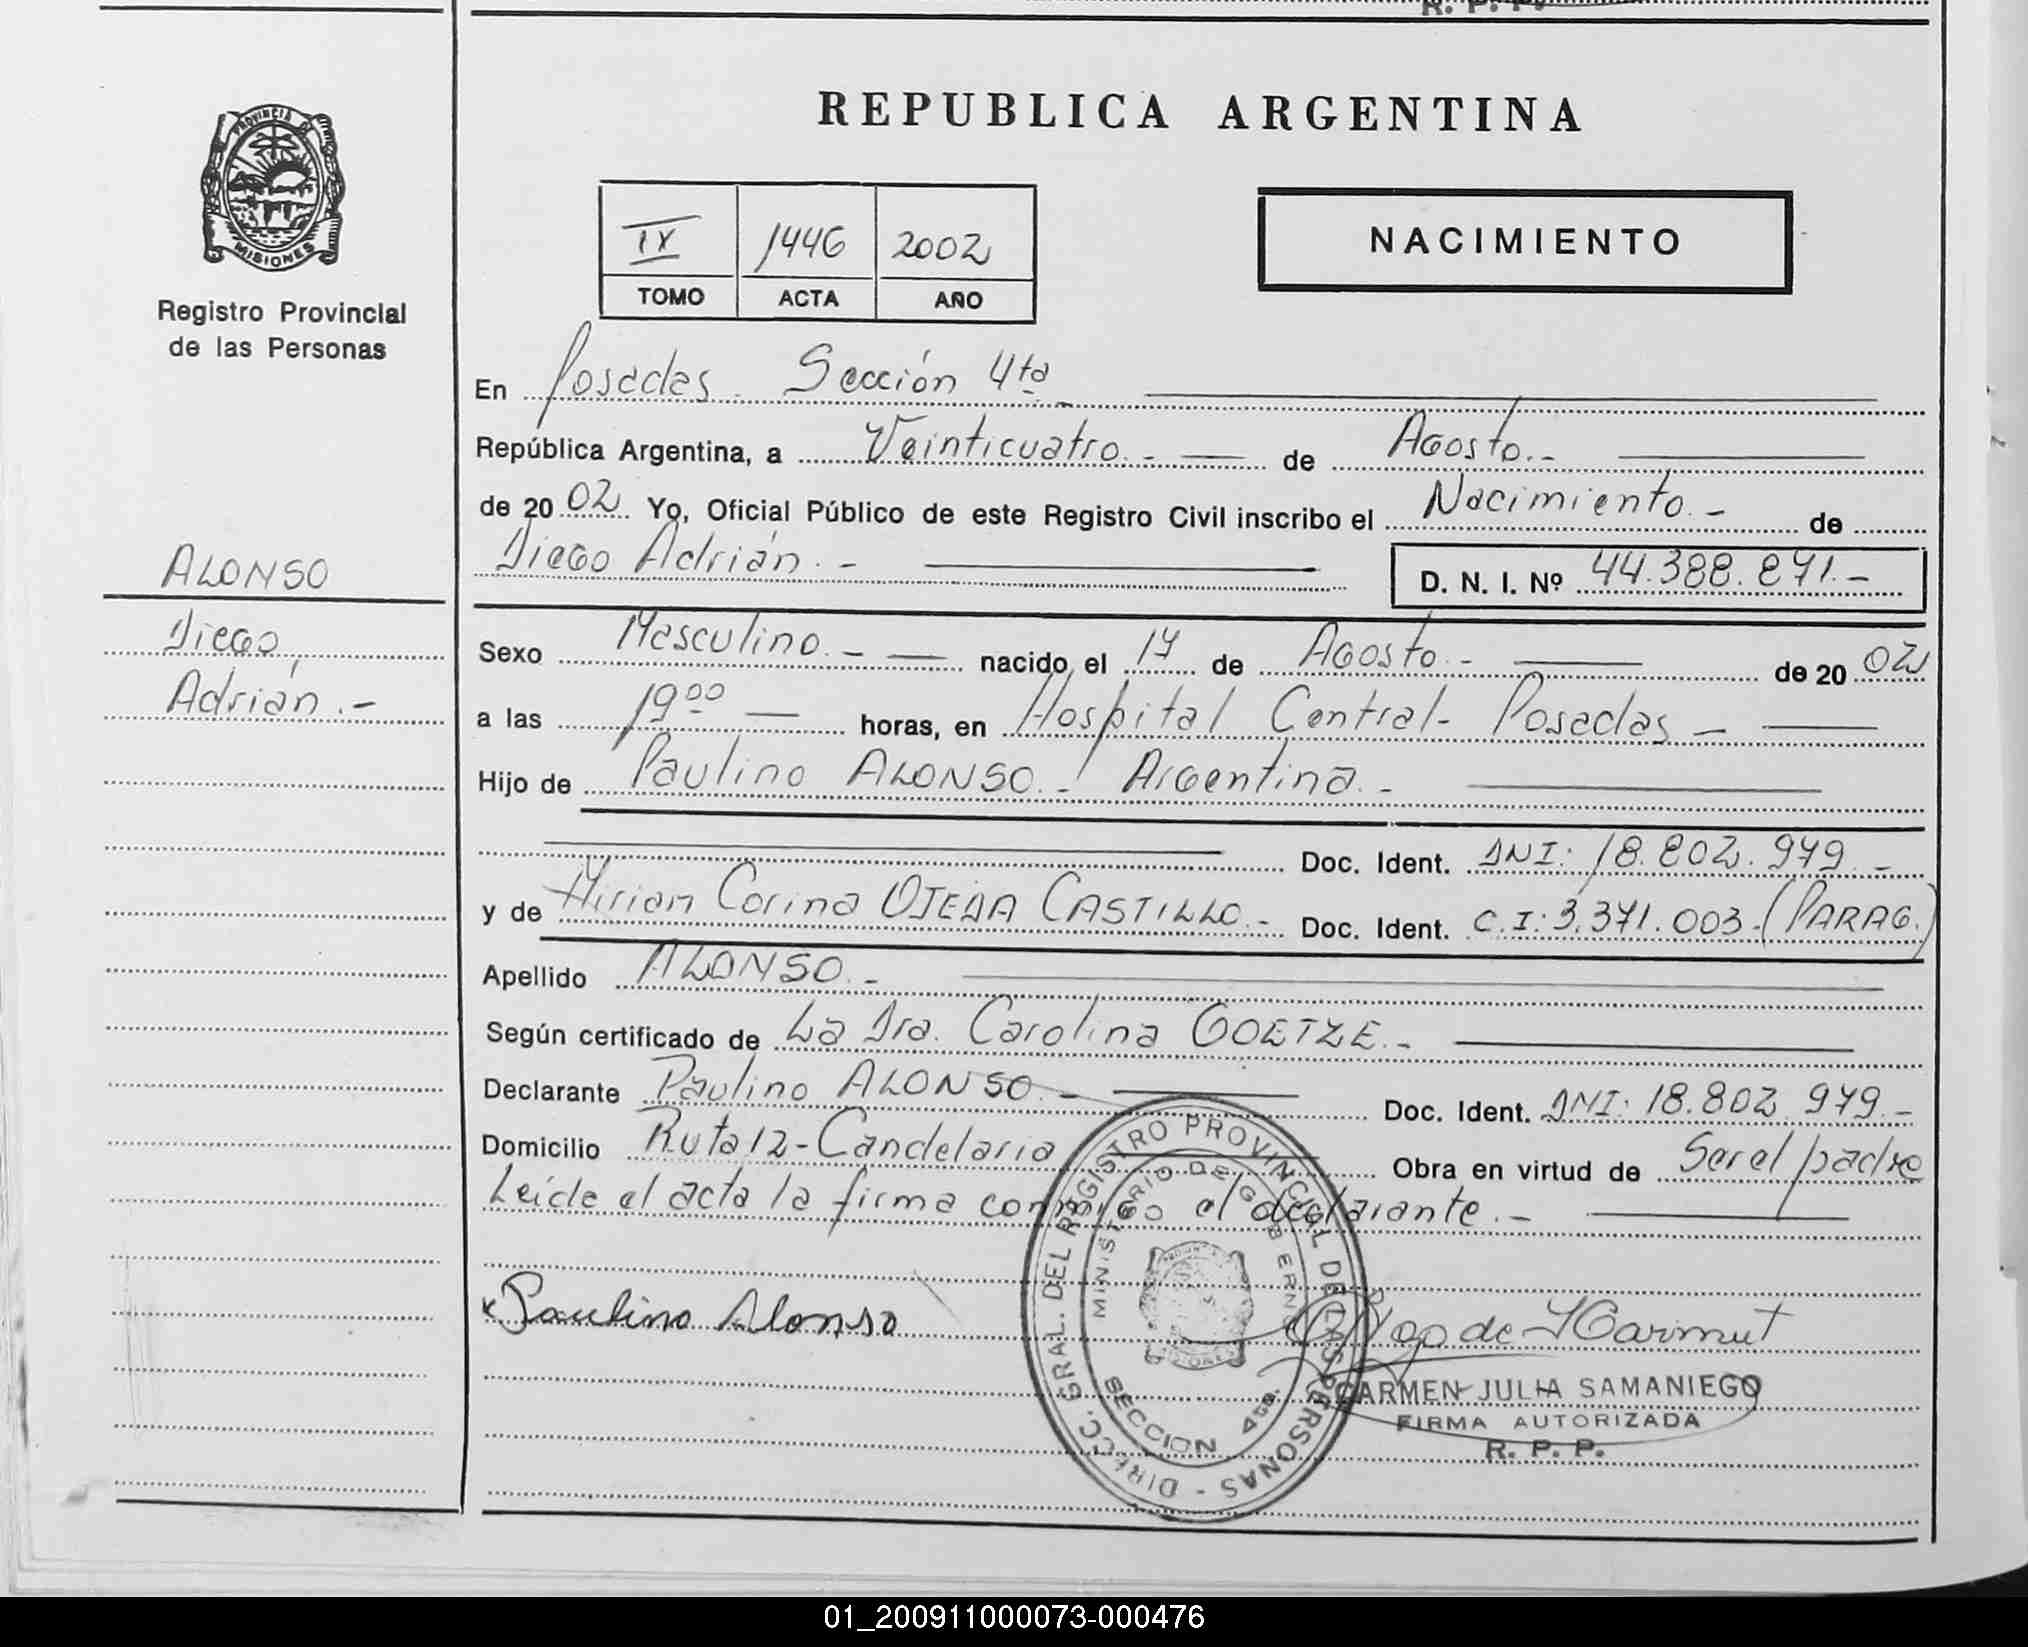 R. P. P.
REPUBLICA ARGENTINA
PROVINCIA DE
MISIONES
Registro Provincial
de las Personas
IX 1446 2002
TOMO ACTA AÑO
NACIMIENTO
En Posadas - Sección 4ta -
República Argentina, a Veinticuatro.- de Agosto.-
de 20 02 Yo, Oficial Público de este Registro Civil inscribo el Nacimiento.- de
Diego Adrián.- D. N. I. Nº 44.388.871.-
ALONSO
Diego,
Adrián.-
Sexo Masculino.- nacido, el 17 de Agosto.- de 20 02
a las 19 00 horas, en Hospital Central - Posadas -
Hijo de Paulino ALONSO.- Argentina.-
Doc. Ident. DNI: 18.802.979.-
y de Mirian Corina OJEDA CASTILLO.- Doc. Ident. C.I: 3.371.003.- (PARAG.)
Apellido ALONSO.-
Según certificado de La Dra. Carolina GOETZE.-
Declarante Paulino ALONSO.- Doc. Ident. DNI: 18.802.979.-
Domicilio Ruta 12 - Candelaria Obra en virtud de Ser el padre
Leída el acta la firma conmigo el declarante.-
x Paulino Alonso
DIRECC. GRAL. DEL REGISTRO PROVINCIAL DE LAS PERSONAS -
MINISTERIO DE GOBIERNO
MISIONES
SECCION 4ta.
CARMEN JULIA SAMANIEGO
FIRMA AUTORIZADA
R. P. P.
01_200911000073-000476